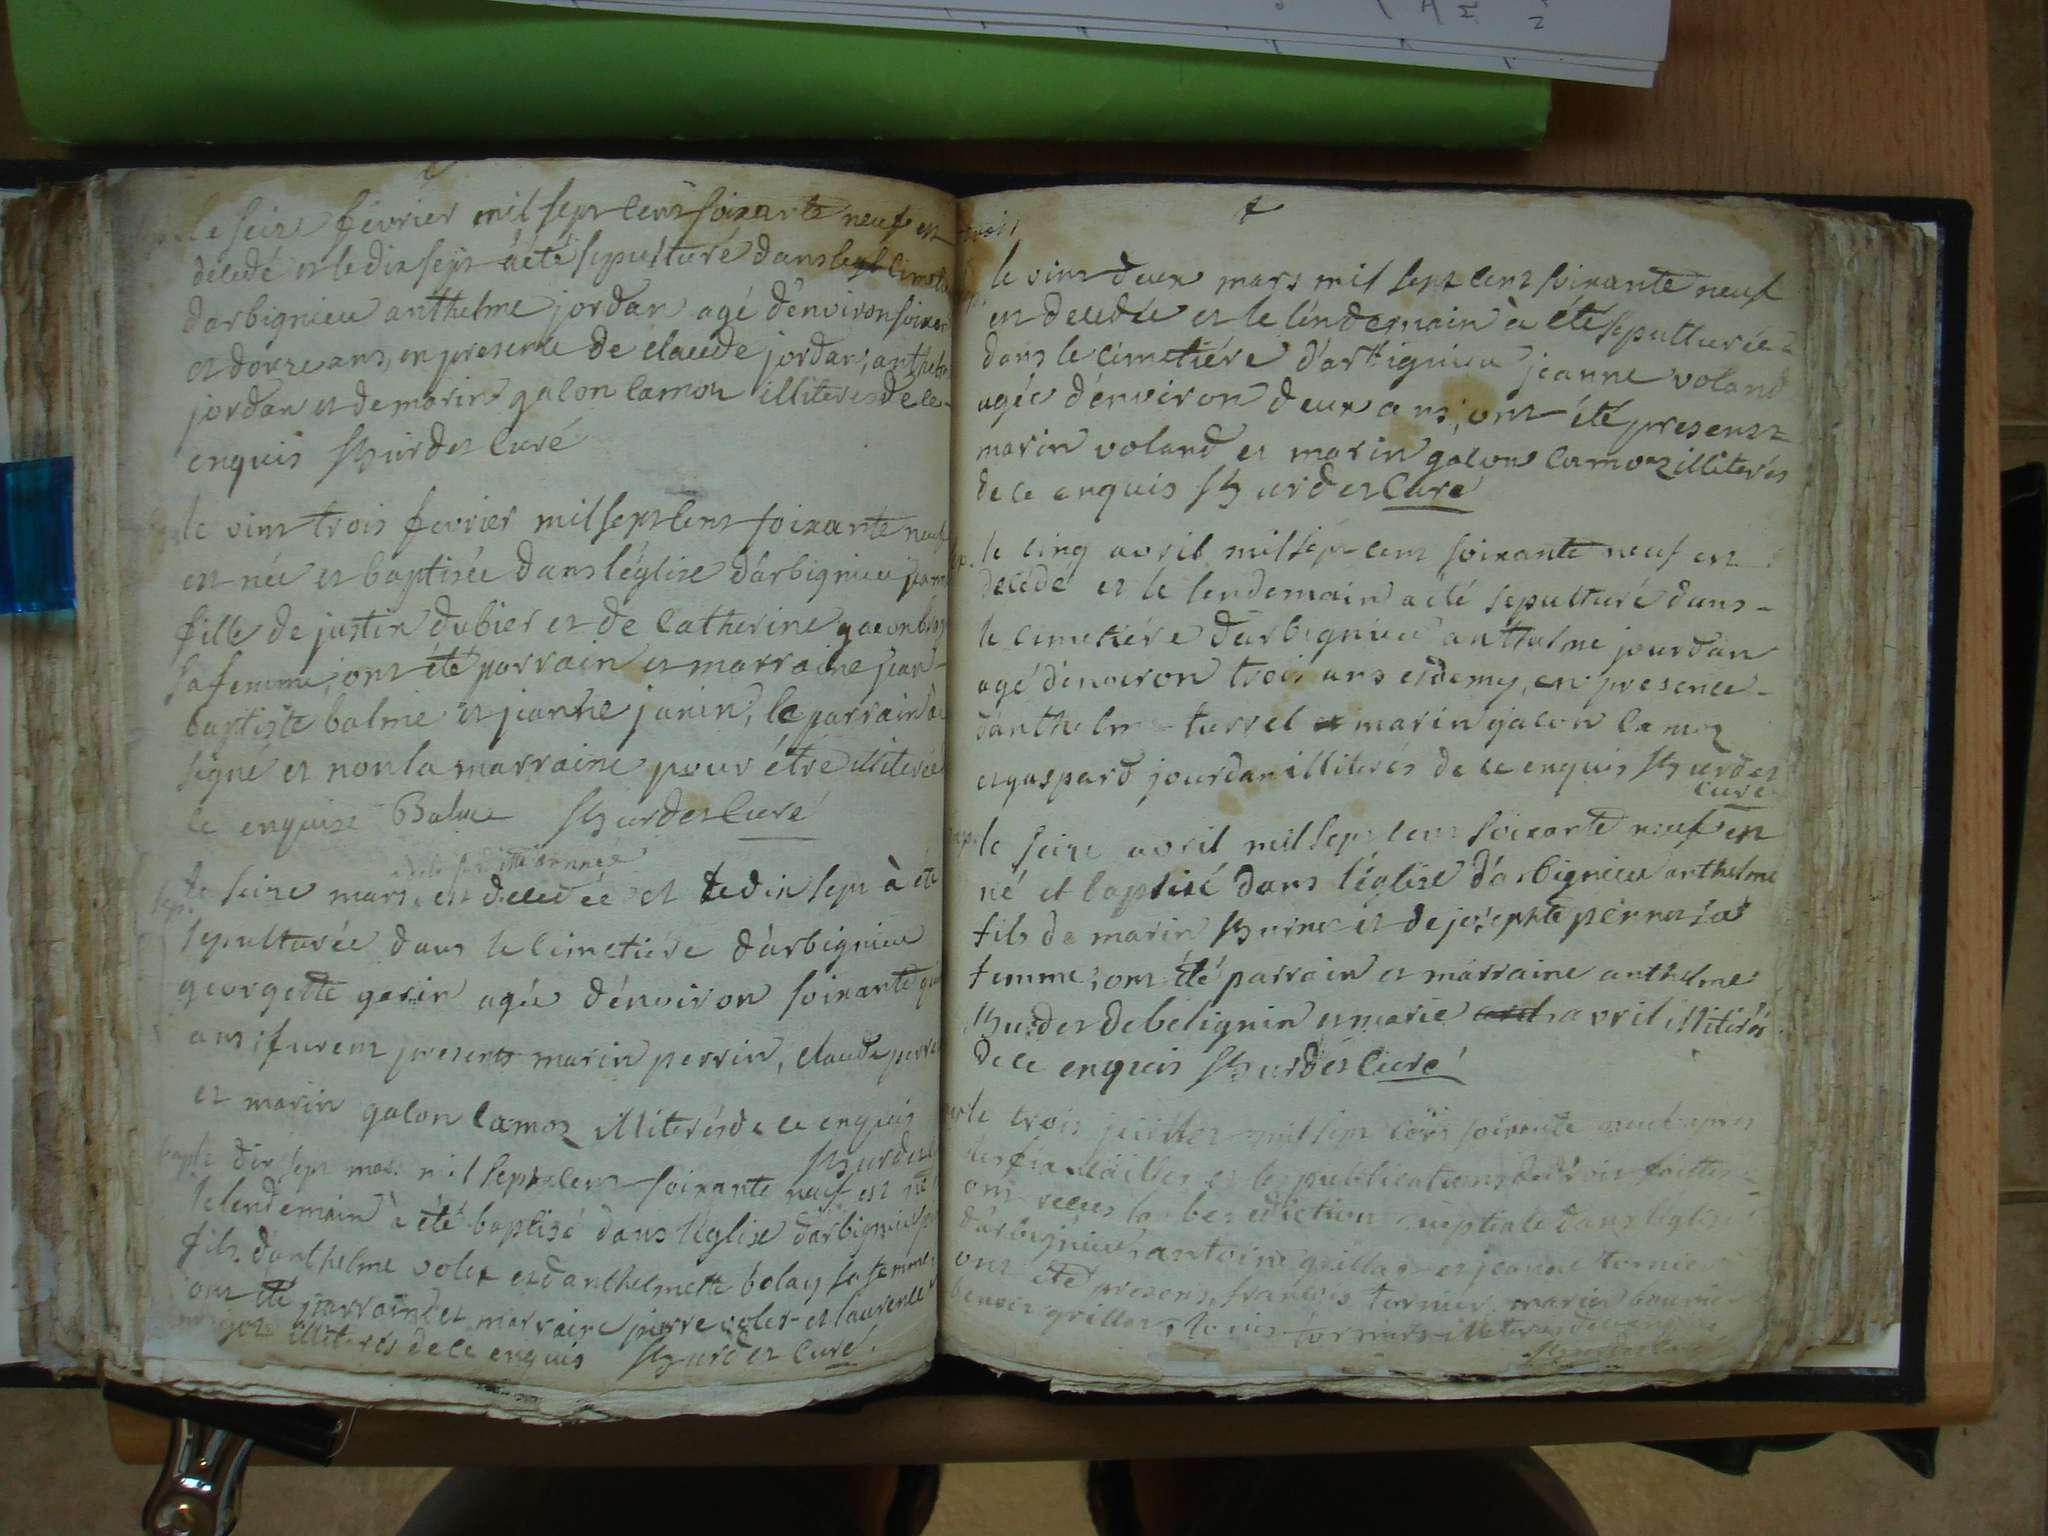 le seize fevrier mil sept cent soixante neuf est
décédé et le dix sept à été sepulturé dans le
d'arbignieu anthelme jordan agé d'environ
et douze ans, en presence de claude jordan, anthelme
jordan et de marin galon lamoz illiterés de ce
enquis hurdet Curé
le vint trois fevrier mil sept cent soixante neuf
est née et baptisée dans l'églize d'arbignieu
fille de justin dubier et de Catherine
sa femme, ont été parrain et marraine jean
baptiste balme et jeanne janin, le parrain a
signé et non la marraine pour étre illiterée
ce enquize Balme hurdet Curé
de la susditte année
Sep. le seize mars est decedée et le dix sept à été
sepulturée dans le cimetiére d'arbignieu
georgette garin agée d'énviron soixante
ans, furent presents marin perrin, claude
et marin galon lamoz illiterés de ce enquis
hurdet
le dix sept mars mil sept cent soixante neuf est né
le lendemain à été baptisé dans l'églize d'arbignieu
fils d'anthelme volet et d'anthelmette bolay sa femme,
ont été parrain et marraine pierre volet et laurence
illiterés de ce enquis hurdet Curé.
le vint deux mars mil sept cent soixante neuf
est decedée et le léndemain à été sepulturée
dans le cimetiére d'arbignieu jeanne voland
agée d'énviron deux ans, ont été presents
marin voland et marin galon lamoz illiterés
de ce enquis hurdet Curé
le cinq avril mil sept cent soixante neuf est
decédé et le lendemain a eté sepulturé dans
le cimetiére d'arbignieu anthelme jourdan
agé d'énviron trois ans et demy, en presence
d'anthelme turrel marin galon lamoz
et gaspard jourdan illiterés de ce enquis hurdet
Curé
le seize avril mil sept cent soixante neuf est
né et baptisé dans l'églize d'arbignieu anthelme
fils de marin et de josephte pérnet sa
femme, ont été parrain et marraine anthelme
hurdet de bélignin et marie avril illiterés
de ce enquis hurdet Curé
le trois juillet mil sept cent soixante neuf apres
les fiancailles et les publications trois faittes
ont recus la benediction nuptiale dans l'églize
d'arbignieu, antoine grillat et jeanne tornier
ont été presens, francois tornier, marin
benoit grillat, louis tornier illiterés de ce enquis
hurdet Curé